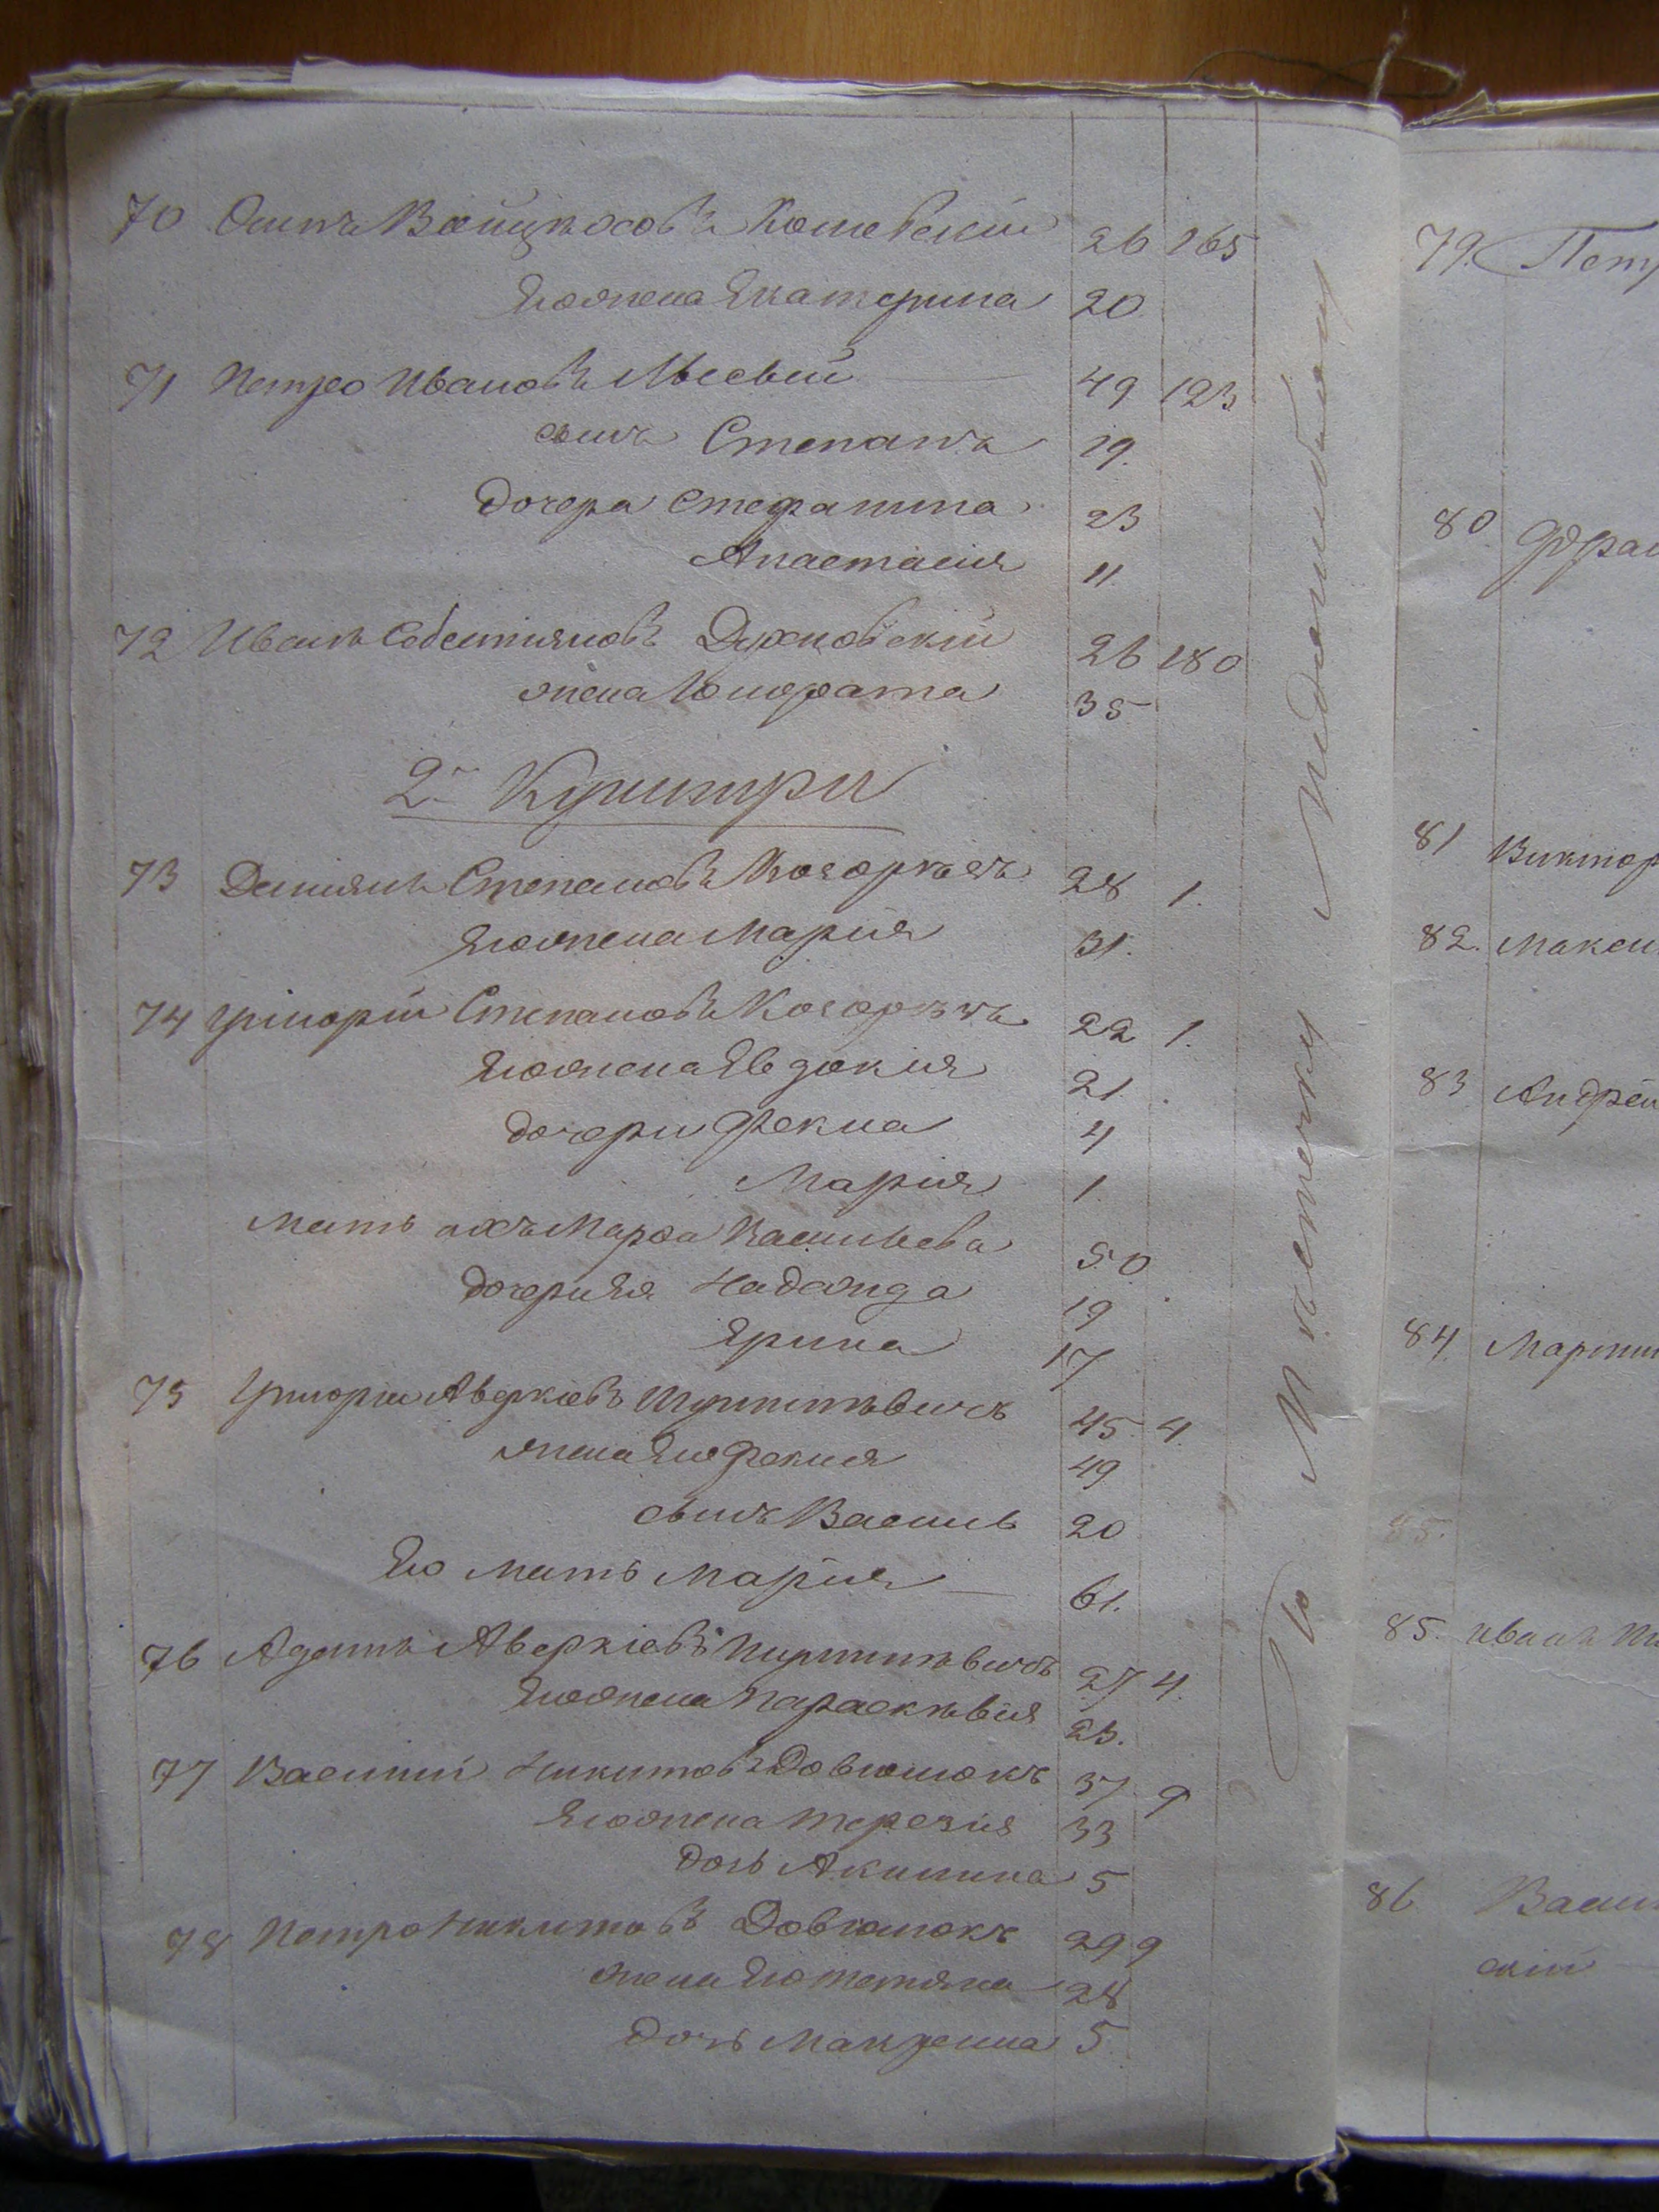 70 Осипъ Войцѣховъ Кошевскій 26 165
Его жена Екатерина 20
71 Петро Ивановъ Лысый 49 123
сынъ Степанъ 19.
Дочера Стефанина 23
Анастасія 11
72 Иванъ Себестіяновъ Духновскій 26 180
жена Юзефата 35
2. Кушитри
73 Даніянъ Степановъ Кочоркъ 28 1.
Его жена Марія 31.
74 Григорій Степановъ Кочоркъ 22 1.
Его жена Евдокія 21.
дочери Фекла 4
Марія 1.
Мать ихъ Марѳа Васильева 50.
дочери ея Надежда 19
Ерина 17
75 Григорій Аверкіевъ 45. 4.
жена его Фекла 49
сынъ Василь 20
Его Мать Марія 61.
76 Адамъ Аверкіевъ 27 4.
Его жена Параскѣвія 23.
77 Василій Никитовъ Довгошокъ 37 9
Его жена Терезія 33
дочь Акилина 5
78 Петро Никитовъ Довгошокъ 29 9
жена Его Тетяна 28
Дочь Макрена 5
По Мѣстечку
79. Петр
80 Фран
81 Виктор
82. Макси
83 Андрей
84. Мартин
85.
85. Иванъ
86 Васил
скій